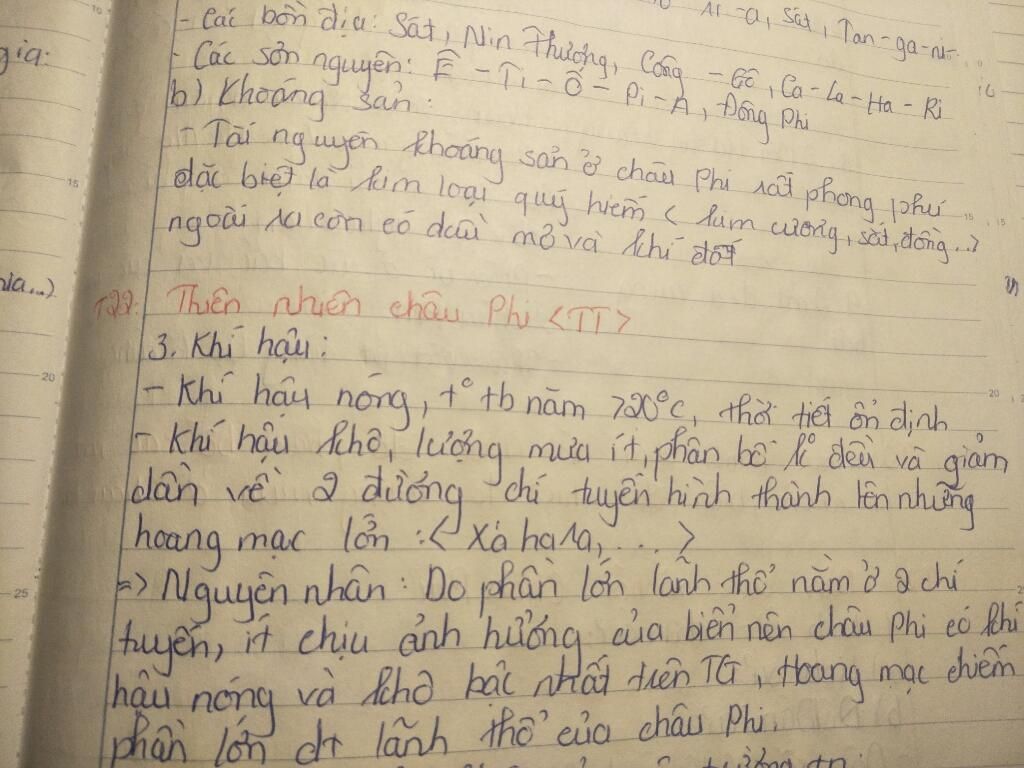 Ni-a, Sát, Tan-ga-ni-
- Các bồn địa: Sát, Nin Thượng, Công - Gô, Ca - La - Ha - Ri
gia:
- Các sơn nguyên: Ê - Ti - Ô - Pi - A, Đông Phi
b) Khoáng sản:
- Tài nguyên khoáng sản ở châu Phi rất phong phú
đặc biệt là kim loại quý hiếm < kim cương, sắt, đồng...>
ngoài ra còn có dầu mỏ và khí đốt
nia...)
T22: Thiên nhiên châu Phi <TT>
3. Khí hậu:
- Khí hậu nóng, t° tb năm >20°c, thời tiết ổn định
- Khí hậu khô, lượng mưa ít, phân bố k° đều và giảm
dần về 2 đường chí tuyến hình thành lên những
hoang mạc lớn :< Xa ha ra, ... >
=> Nguyên nhân: Do phần lớn lãnh thổ nằm ở 2 chí
tuyến, ít chịu ảnh hưởng của biển nên châu Phi có khí
hậu nóng và khô bậc nhất trên TG, Hoang mạc chiếm
phần lớn dt lãnh thổ của châu Phi.